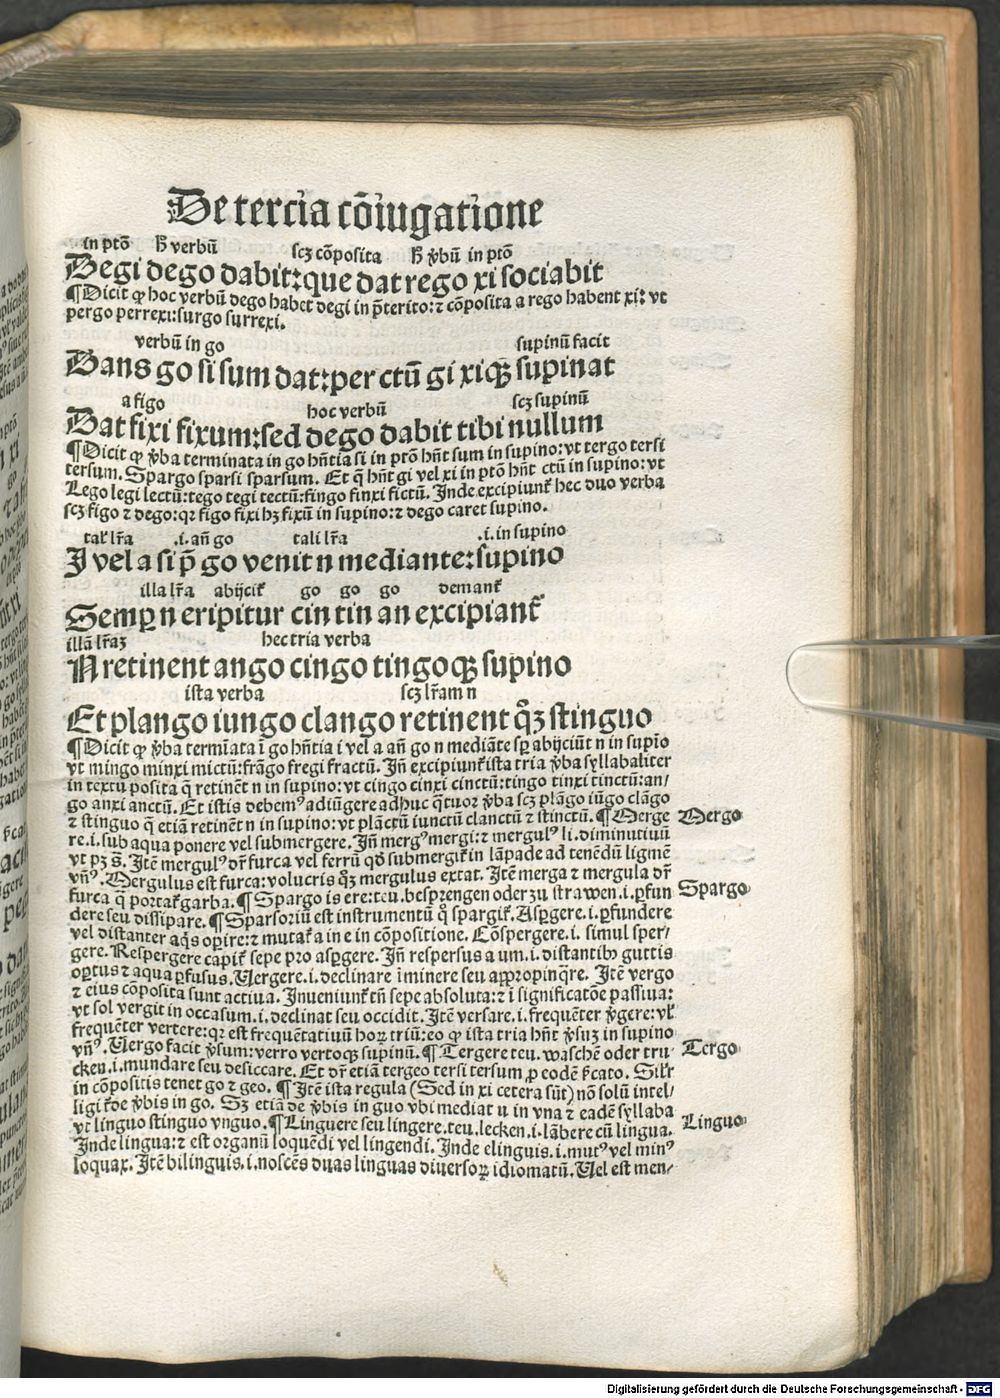 De tercia cõiugatione
in ptõ hͦ verbũ scꝫ cõposita hͦ v̾bũ in ptõ
Degi dego dabit: que dat rego xi sociabit
¶Dicit qp hoc verbũ dego habet degi in p̃terito: ⁊ cõposita a rego habent xi: vt
pergo perrexi: surgo surrexi.
verbũ in go supinũ facit
Dans go si sum dat: per ctũ gi xiqꝫ supinat
a figo hoc verbũ scꝫ supinũ
Dat fixi fixum: sed dego dabit tibi nullum
¶Dicit qp v̾ba terminata in go hñtia si in ptõ hñt sum in supino: vt tergo tersi
tersum. Spargo sparsi sparsum. Et q̃ hñt gi vel xi in ptõ hñt ctũ in supino: vt
Lego legi lectũ: tego tegi tectũ: fingo finxi fictũ. Inde excipiunt᷑ hec duo verba
scꝫ figo ⁊ dego: qꝛ figo fixi hꝫ fixũ in supino: ⁊ dego caret supino.
tal' lr̃a .i. añ go tali lr̃a .i. in supino
I vel a si p̃ go venit n mediante: supino
illa lr̃a abijcit᷑ go go go demant᷑
Semꝑ n eripitur cin tin an excipiant᷑
illã lr̃aꝫ hec tria verba
N retinent ango cingo tingoqꝫ supino
ista verba scꝫ lr̃am n
Et plango iungo clango retinent q̃ꝫ stinguo
¶Dicit qp v̾ba termĩata ĩ go hñtia i vel a añ go n mediãte sꝑ abijciũt n in supĩo
vt mingo minxi mictũ: frãgo fregi fractũ. Iñ excipiunt᷑ ista tria v̾ba syllabaliter
in textu posita q̃ retinẽt n in supino: vt cingo cinxi cinctũ: tingo tinxi tinctũ: an/
go anxi anctũ. Et istis debemꝰ adiũgere adhuc q̃tuor v̾ba scꝫ plãgo iũgo clãgo
⁊ stinguo q̃ etiã retinẽt n in supino: vt plãctũ iunctũ clanctũ ⁊ stinctũ. ¶Merge Mergo
re .i. sub aqua ponere vel submergere. Iñ mergꝰ mergi: ⁊ mergulꝰ li. diminutiuũ
vt pꝫ s̃. Itẽ mergulꝰ dr̃ furca vel ferrũ qd̕ submergit᷑ in lãpade ad tenẽdũ ligmẽ
vñꝰ. Mergulus est furca: volucris q̃ꝫ mergulus extat. Itẽ merga ⁊ mergula dr̃
furca q̃ portat᷑ garba. ¶ Spargo is ere: teu. besprengen oder zu strawen .i. ꝑfun Spargo
dere seu dissipare. ¶ Sparsoriũ est instrumentũ q̊ spargit᷑. Asꝑgere .i. ꝑfundere
vel distanter aq̃s oꝑire: ⁊ mutat᷑ a in e in cõpositione. Cõspergere .i. simul sper/
gere. Respergere capit᷑ sepe pro asꝑgere. Iñ respersus a um .i. distantibꝫ guttis
oꝑtus ⁊ aqua ꝑfusus. Uergere .i. declinare ĩminere seu aꝓpropinq̃re. Itẽ vergo
⁊ eius cõposita sunt actiua. Inueniunt᷑ tñ sepe absoluta: ⁊ ĩ significatõe passiua:
vt sol vergit in occasum .i. declinat seu occidit. Itẽ versare .i. frequẽter v̾gere: vl'
frequẽter vertere: qꝛ est frequẽtatiuũ hoꝝ triũ: eo qp ista tria hñt v̾suꝫ in supino
vñꝰ. Uergo facit v̾sum: verro vertoqꝫ supinũ. ¶ Tergere teu. waschẽ oder tru/ Tergo
cken .i. mundare seu desiccare. Et dr̃ etiã tergeo tersi tersum ꝓ eodẽ s̃cato. Silr̃
in cõpositis tenet go ⁊ geo. ¶ Itẽ ista regula (Sed in xi cetera sũt) nõ solũ intel/
ligit᷑ de v̾bis in go. Sꝫ etiã de v̾bis in guo vbi mediat u in vna ⁊ eadẽ syllaba
vt linguo stinguo vnguo. ¶ Linguere seu lingere. teu. lecken .i. lãbere cũ lingua. Linguo
Inde lingua: ⁊ est organũ loquẽdi vel lingendi. Inde elinguis .i. mutꝰ vel minꝰ
loquax. Itẽ bilinguis .i. noscẽs duas linguas diuersoꝝ idiomatũ. Uel est men/
Digitalisierung gefördert durch die Deutsche Forschungsgemeinschaft - DFG